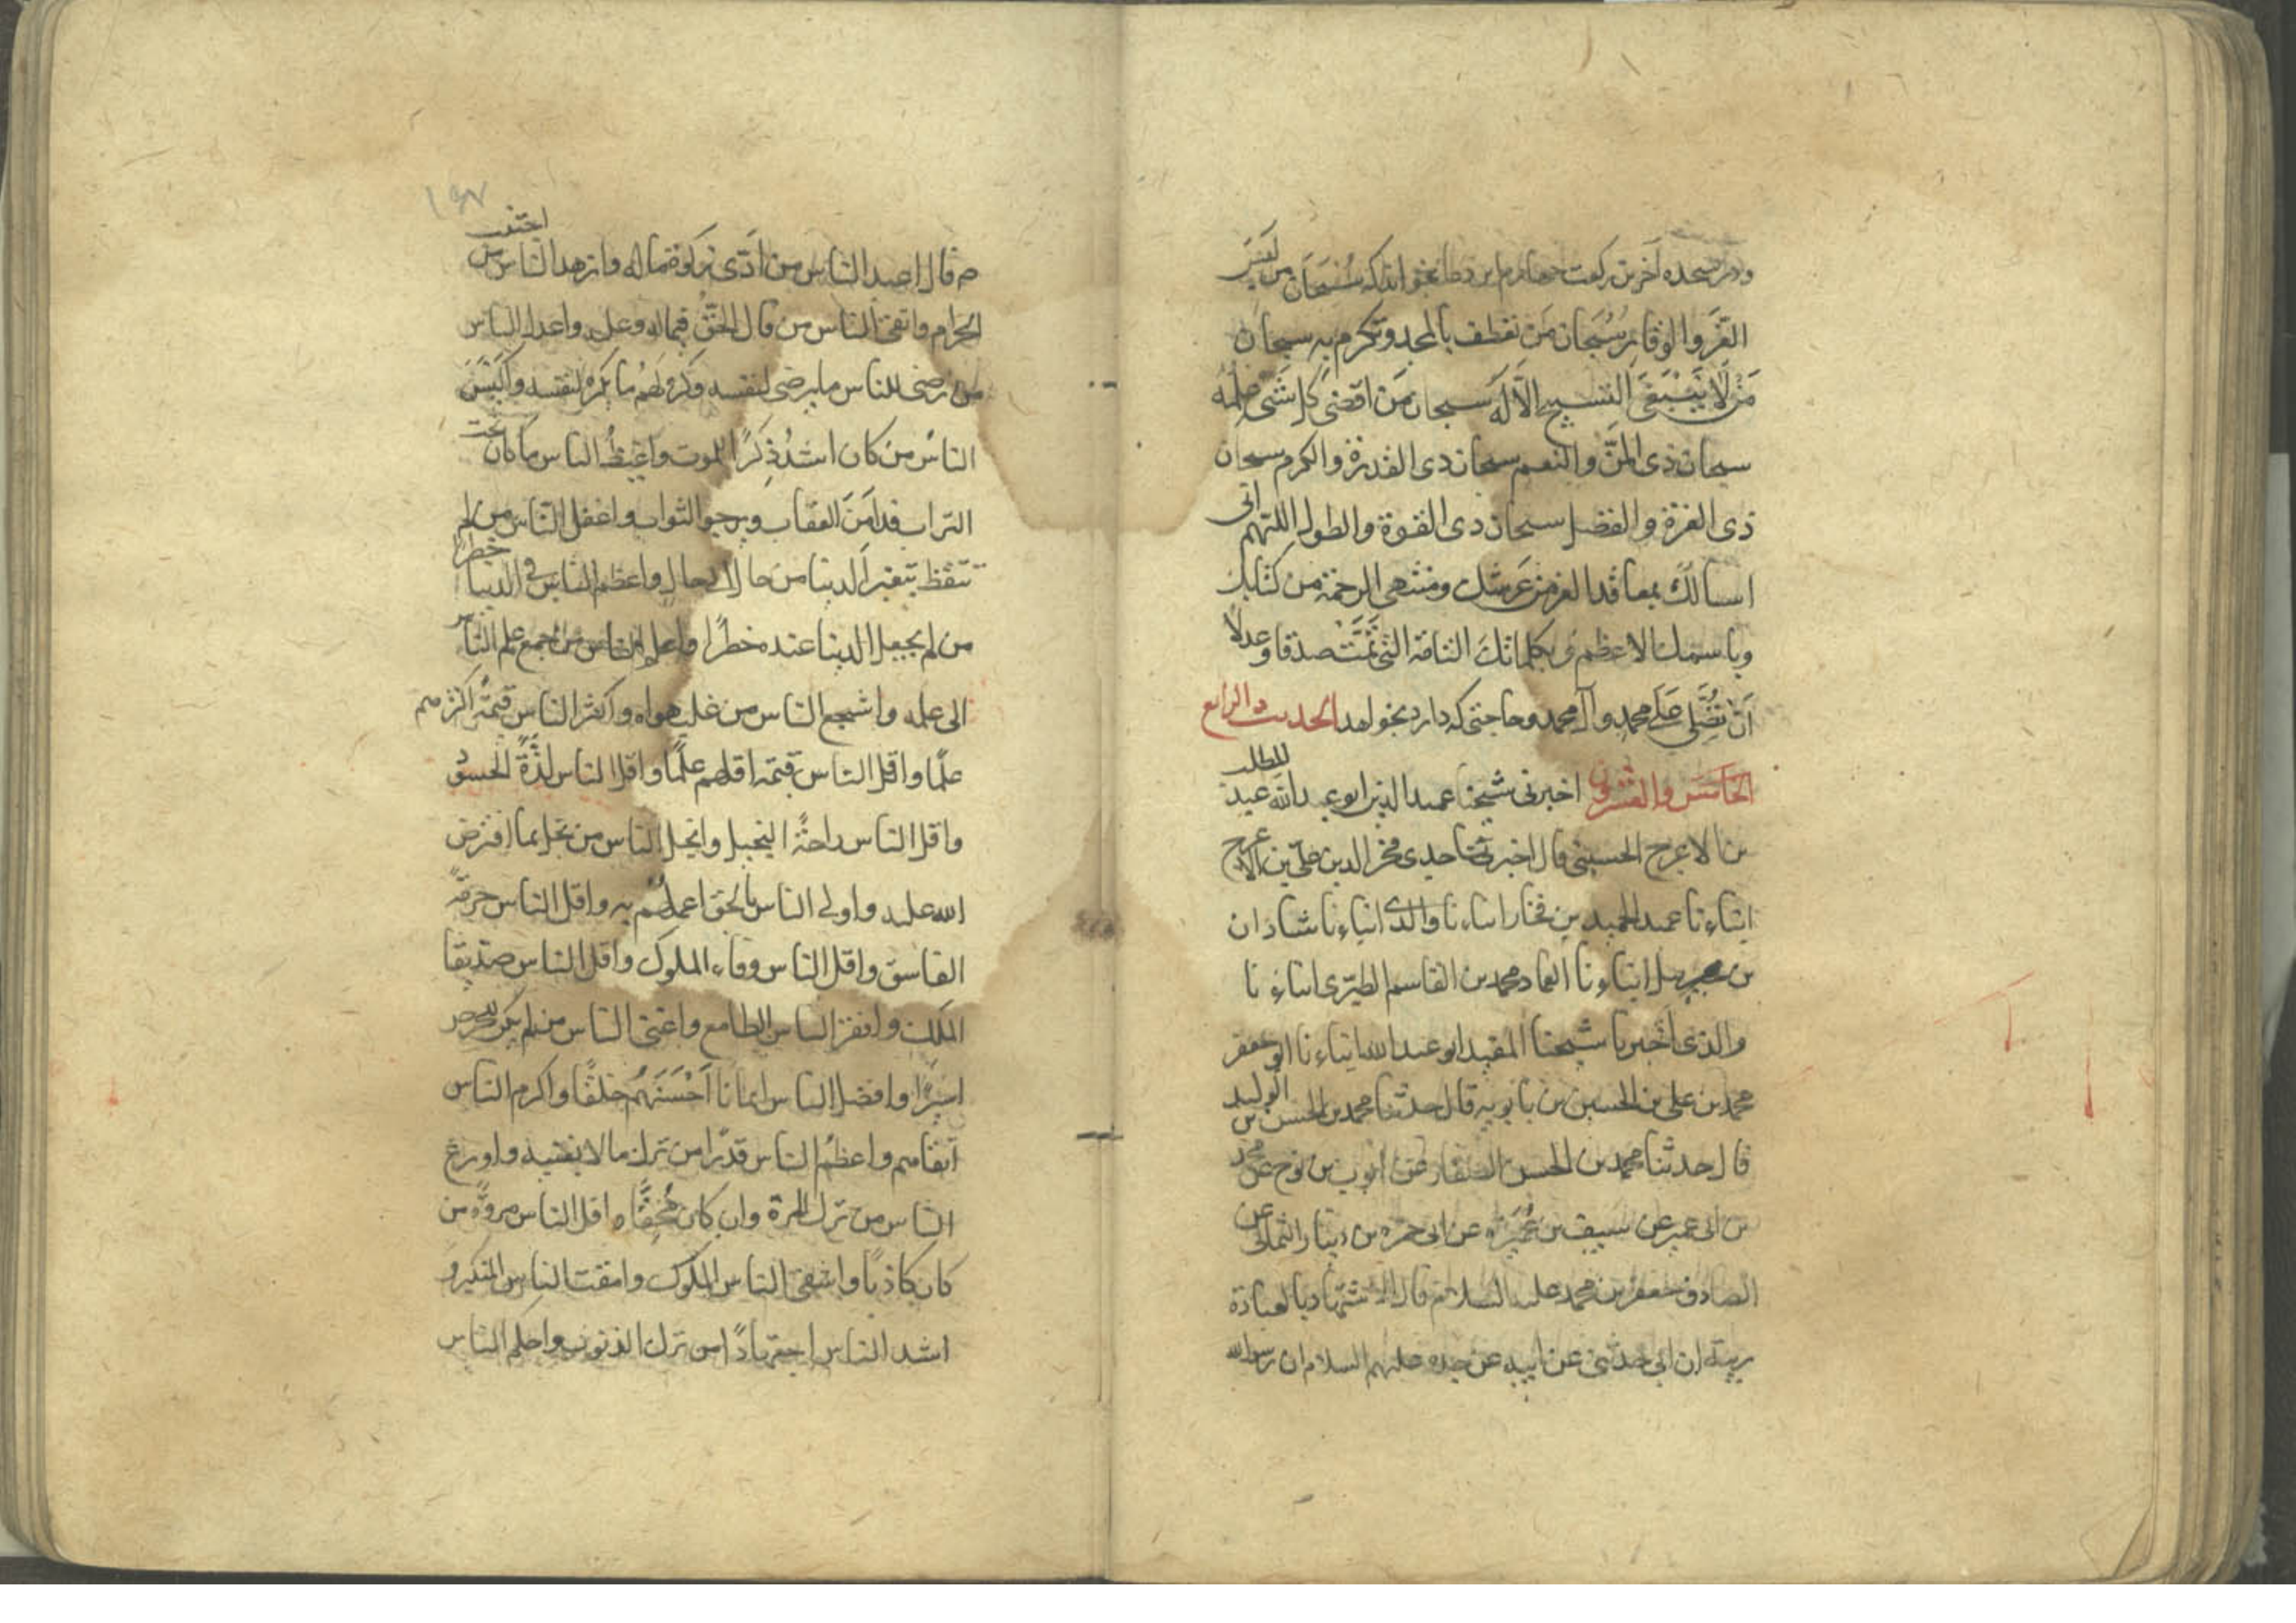 ودر سجده آخرین رکعت چهارم این دعا بخواند که سُبْحَانَ من لَبِسَ
العّز والوقار سُبْحَان مَن تعطف بالمجد وتکرم بِه سبحان
مَنْ لَا یَنْبَغِی التسبیح اِلّا لَه سبحان مَن احصٰی کل شَیٔ علمُه
سبحان ذی المَنّ والنعم سبحان ذی القدرة والکرم سبحان
ذی العزة والفضل سبحان ذی القوة والطول اللّهم انی
اسألکَ بمعاقد العز من عَرشک ومنتهی الرحمة من کتابک
وباسمک الاعظم و بکلماتک التامّة التی تَمَّتْ صدقا وعدلًا
اَنْ تُصَلِّیَ عَلی محمد وآل محمد وحاجتی که دارد بخواهد الحدیث الرابع
الخامس والعشرون اخبرنی شیخنا عمید الدین ابو عبد الله عبد المطلب
بن الاعرج الحسینی قال اخبرنی جدی فخر الدین علی بن الاعرج
انباءنا عبد الحمید بن فخار انباءنا والدی انباءنا شاذان
بن جبریل انباءنا العماد محمد بن القاسم الطبری انباءنا
والذی اخبرنا شیخنا المفید ابو عبد الله انباءنا ابو جعفر
محمد بن علی بن الحسین بن بابویه قال حدثنا محمد بن الحسن بن الولید
قال حدثنا محمد بن الحسن الصفار عن ایوب بن نوح عن محمد
بن ابی عمیر عن سیف بن عُمَیْرَه عن ابی حمزه بن دینار الثمالی عن
الصادق جعفر بن محمد علیه السلام قال الاشتهار بالعبادة
ریبة ان ابی حدثنی عن ابیه عن جده علیهم السلام ان رسول الله
١٤٧
ص قال اعبد الناس من اَدّی زکوة ماله وازهد الناس من اجتنب
الحرام واتقی الناس من قال الحَقّ فیما له وعلیه واعدل الناس
من رضی للناس ما یرضی لنفسه وکره لهم ما یکره لنفسه واَکْیَسُ
الناس من کان اشدّ ذِکرًا للموت واغبط الناس ما کان تحت
التراب قد اَمِنَ العقاب ویرجو الثواب واغفل الناس من لم
یتعظ بتغیر الدنیا من حال الی حال واعظم الناس فی الدنیا خطرا
من لم یجعل الدنیا عنده خطرًا واعلم الناس من جمع علم الناس
الی علمه واشجع الناس من غلب هواه واکثر الناس قیمةً اکثرهم
علمًا واقل الناس قیمته اقلهم علمًا واقل الناس لذَّةً الحسود
واقل الناس راحةً البخیل وابخل الناس من بخل بما افترض
الله علیه واولی الناس بالحق اعملهم به واقل الناس حرمةً
الفاسق واقل الناس وفاء الملوک واقل الناس صدیقا
الملک وافقر الناس الطامع واغنی الناس من لم یکن للحرص
اسیرًا وافضل الناس ایمانا اَحْسَنَهُم خلقًا واکرم الناس
اتقاهم واعظمُ الناس قدرًا من ترک ما لا یعنیه واورع
الناس من ترک المرة وان کان مُحِقًّا و اقل الناس مروَّه من
کان کاذبًا واشقی الناس الملوک وامقت الناس المتکبر و
اشد الناس اجتهادًا من ترک الذنوب واحلم الناس